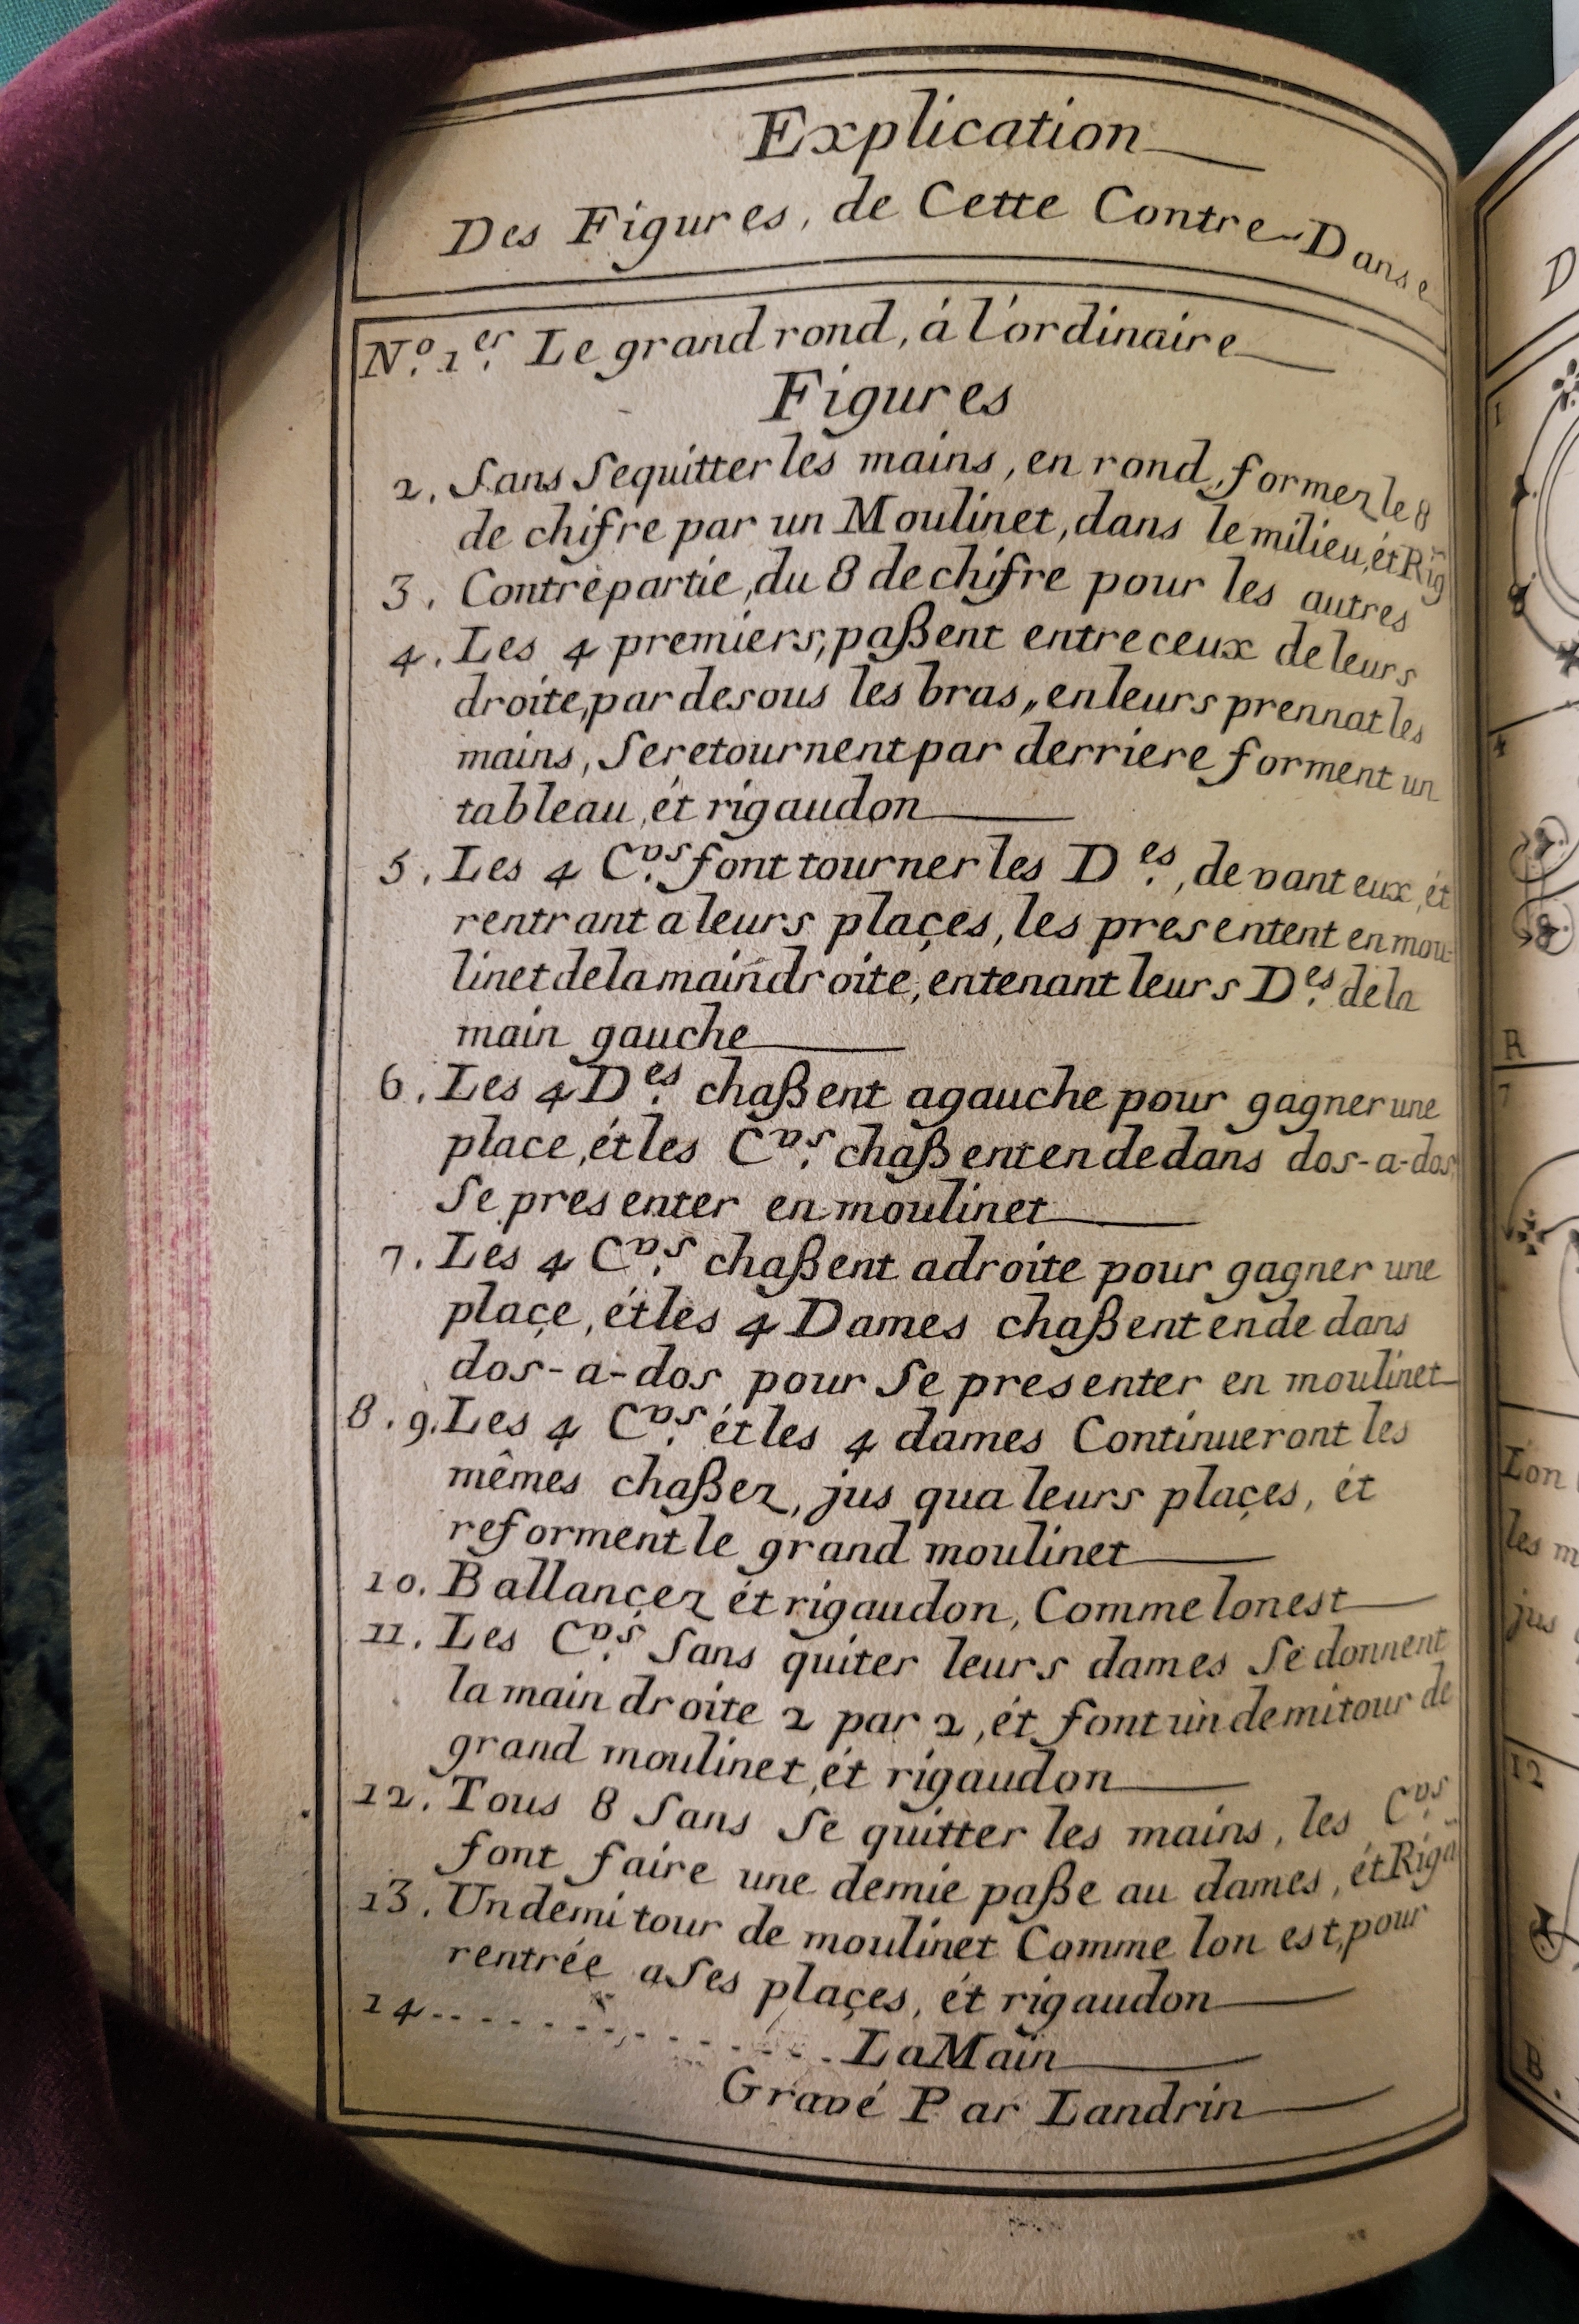 Explication
Des Figures, de Cette Contre-Danse
N.º 1.er Le grand rond, á l'ordinaire
Figures
2. Sans Se quitter les mains, en rond, former le 8
de chifre par un Moulinet, dans le milieu, ét Rig̃
3. Contrepartie, du 8 de chifre pour les autres
4. Les 4 premiers, paßent entre ceux de leurs
droite, par desous les bras, en leurs prennat les
mains, Se retournent par derriere forment un
tableau, ét rigaudon
5. Les 4 C.vrs font tourner les D.es, devant eux, ét
rentrant a leurs plaçes, les presentent en mou-
linet de la main droite, en tenant leurs D.es de la
main gauche
6. Les 4 D.es chaßent a gauche pour gagner une
place, ét les C.vrs chaßent en dedans dos-a-dos
Se presenter en moulinet
7. Les 4 C.vrs chaßent a droite pour gagner une
plaçe, ét les 4 Dames chaßent en de dans
dos-a-dos pour Se presenter en moulinet
8. 9. Les 4 C.vrs ét les 4 dames Continueront les
mêmes chaßez, jus qua leurs plaçes, ét
reforment le grand moulinet
10. Ballançez ét rigaudon, Comme lon est
11. Les C.vrs Sans quiter leurs dames Se donnent
la main droite 2 par 2, ét font un demi tour de
grand moulinet, ét rigaudon
12. Tous 8 Sans Se quitter les mains, les C.vrs
font faire une demie paße au dames, ét Rig̃a
13. Un demi tour de moulinet Comme lon est, pour
rentrée a Ses plaçes, ét rigaudon
14.............. La Main
Gravé Par Landrin
D
1
4
R
7
Lon
les m
jus
12
B.